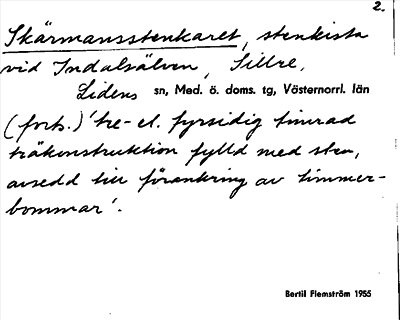 2.
Skärmansstenkaret, stenkista
vid Indalsälven, Sillre,
Lidens sn, Med. ö. doms. tg, Västernorrl. län
(forts.) 'tre- el. fyrsidig timrad
träkonstruktion fylld med sten,
avsedd till förankring av timmer-
bommar'.
Bertil Flemström 1955